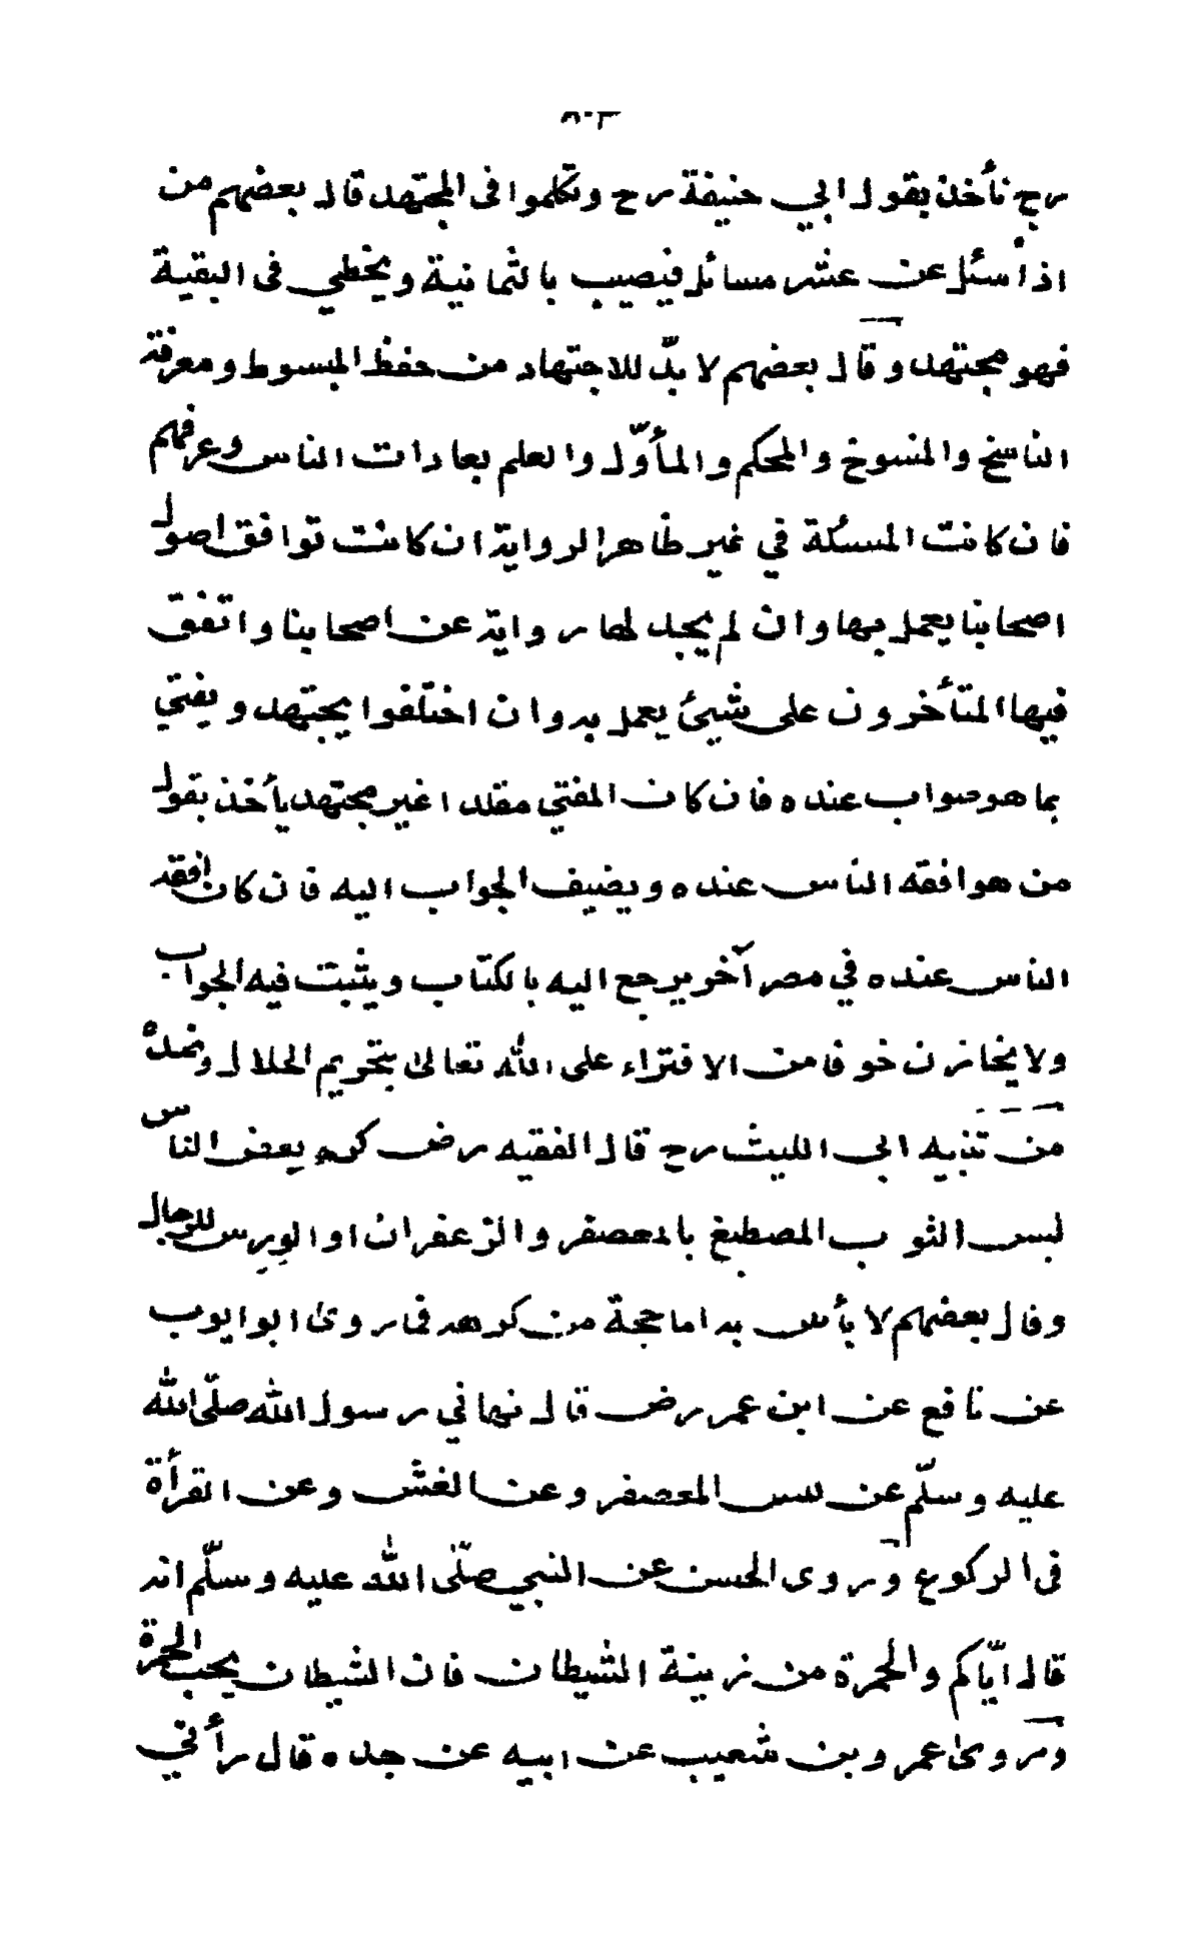 ٥٠٣
رح نأخذ بقول ابي حنيفة رح وتكلموا فى المجتهد قال بعضهم من
اذا سئل عن عشر مسائل فيصيب بالثمانية ويخطي فى البقية
فهو مجتهد وقال بعضهم لا بدّ للاجتهاد من حفظ المبسوط ومعرفة
الناسخ والمنسوخ والمحكم والمأوّل والعلم بعادات الناس وعرفهم
فان كانت المسئلة في غير ظاهر الرواية ان كانت توافق اصول
اصحابنا يعمل بها وان لم يجد لها رواية عن اصحابنا واتفق
فيها المتأخرون على شيئ يعمل به وان اختلفوا يجتهد ويفتي
بما هو صواب عنده فان كان المفتي مقلدا غير مجتهد يأخذ بقول
من هو افقه الناس عنده ويضيف الجواب اليه فان كان افقه
الناس عنده في مصر آخر يرجع اليه بالكتاب ويثبت فيه الجواب
ولا يخازن خوفا من الافتراء على الله تعالى بتحريم الحلال وضده
من تنبيه ابي الليث رح قال الفقيه رض كره بعض الناس
لبس الثوب المصطبغ بالمعصفر والزعفران او الورس للرجال
وقال بعضهم لا بأس به اما حجة من كرهه فما روى ابو ايوب
عن نافع عن ابن عمر رض قال نهاني رسول الله صلّى الله
عليه وسلّم عن لبس المعصفر وعن الغش وعن القرأة
فى الركوع وروى الحسن عن النبي صلّى الله عليه وسلّم انه
قال ايّاكم والحمرة من زينة الشيطان فان الشيطان يحب الحمرة
وروى عمرو بن شعيب عن ابيه عن جده قال رأني